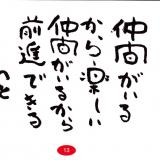 仲间がいる
から楽しい
仲间がいるから
前進できる
13